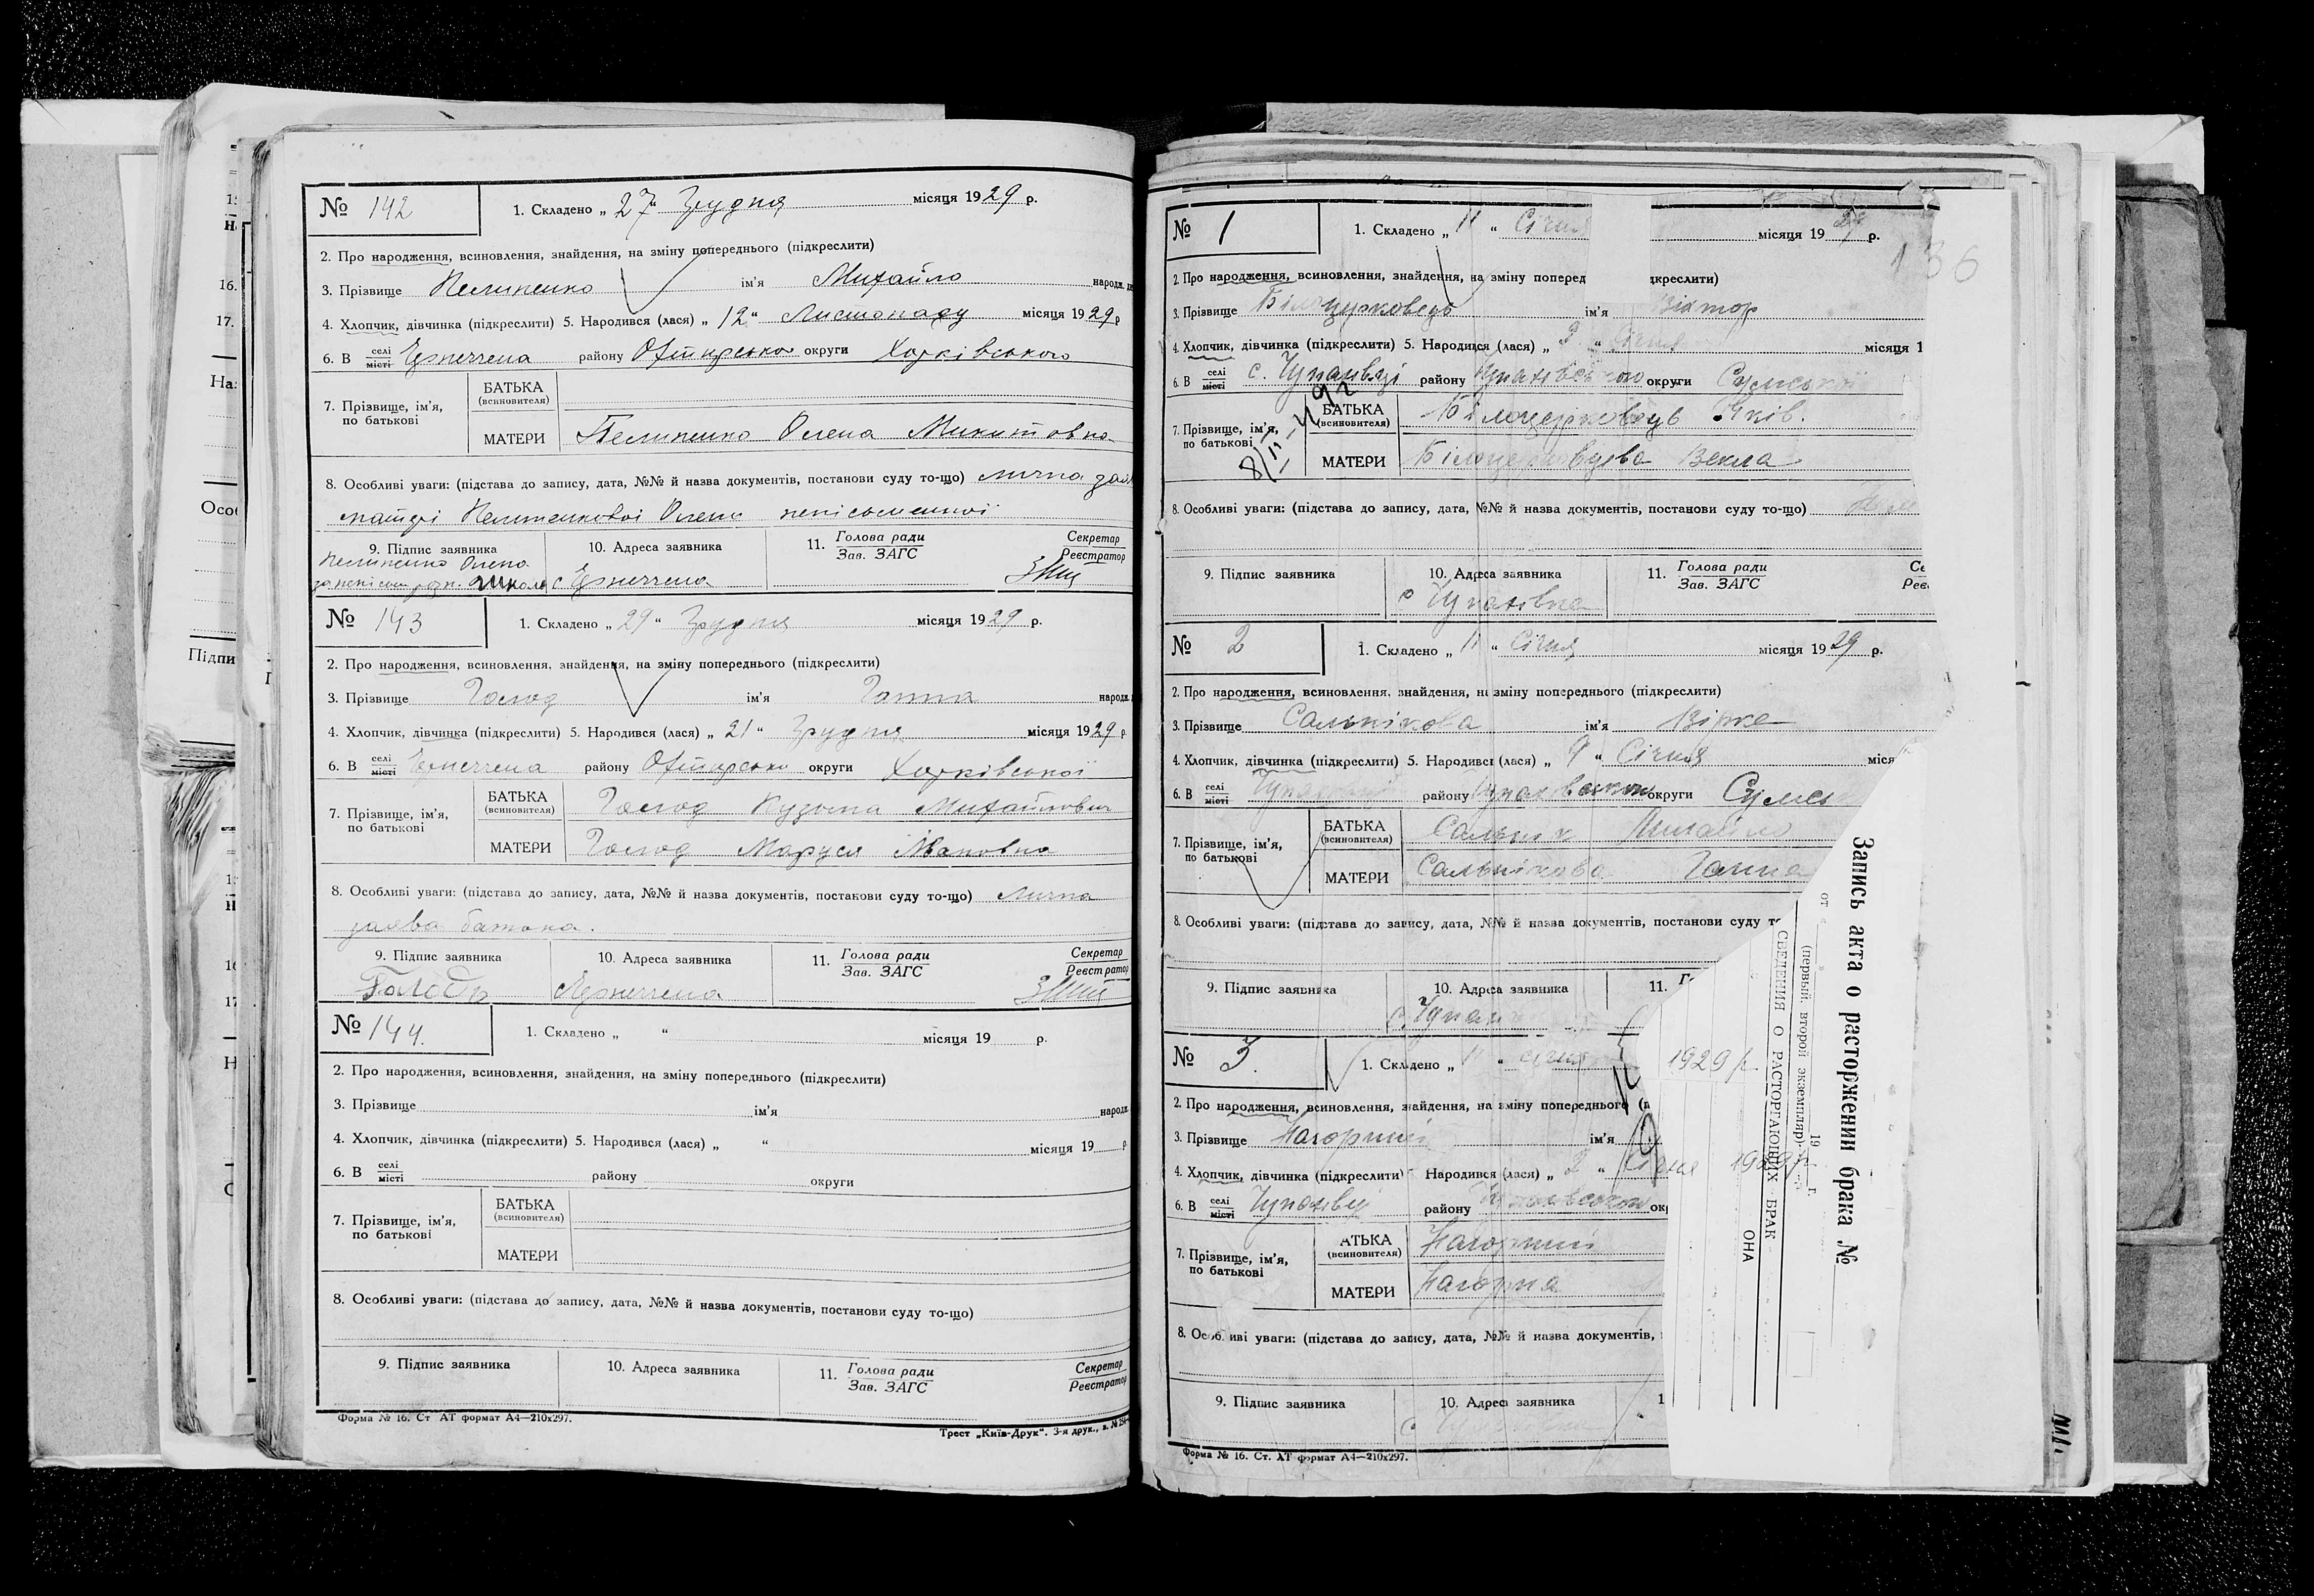 № 142
1. Складено „ 27 “ Грудня місяця 1929 р.
2. Про народження, всиновлення, знайдення, на зміну попереднього (підкреслити)
3. Прізвище Пелипенко ім'я Михайло народж.
4. Хлопчик, дівчинка (підкреслити) 5. Народився (лася) „ 12 “ Листопаду місяця 1929 р
6. В селі місті району округи
7. Прізвище, ім'я, по батькові
БАТЬКА (всиновителя)
МАТЕРИ Пелипенко Олена Микитовна
8. Особливі уваги: (підстава до запису, дата, №№ й назва документів, постанови суду то-що) лична
матері Олени
9. Підпис заявника
10. Адреса заявника
11. Голова ради Зав. ЗАГС
Секретар Реєстратор
Пелипенко Олена
№ 143
1. Складено „ 29 “ Грудня місяця 1929 р.
2. Про народження, всиновлення, знайдення, на зміну попереднього (підкреслити)
3. Прізвище Голод ім'я Ганна народж.
4. Хлопчик, дівчинка (підкреслити) 5. Народився (лася) „ 21 “ Грудня місяця 1929 р.
6. В селі місті району округи Харківської
7. Прізвище, ім'я, по батькові
БАТЬКА (всиновителя) Голод Кузьма Михайлович
МАТЕРИ Голод Маруся Івановна
8. Особливі уваги: (підстава до запису, дата, №№ й назва документів, постанови суду то-що) лична
заява батька.
9. Підпис заявника
10. Адреса заявника
11. Голова ради Зав. ЗАГС
Секретар Реєстратор
Голодъ
№ 144.
1. Складено „ “ місяця 19 р.
2. Про народження, всиновлення, знайдення, на зміну попереднього (підкреслити)
3. Прізвище ім'я народж
4. Хлопчик, дівчинка (підкреслити) 5. Народився (лася) „ “ місяця 19 р
6. В селі місті району округи
7. Прізвище, ім'я, по батькові
БАТЬКА (всиновителя)
МАТЕРИ
8. Особливі уваги: (підстава до запису, дата, №№ й назва документів, постанови суду то-що)
9. Підпис заявника
10. Адреса заявника
11. Голова ради Зав. ЗАГС
Секретар Реєстратор
Форма № 16. Ст АТ формат А4—210х297.
Трест „Київ-Друк“. 3-я друк.,
№ 1
1. Складено „ 11 “ Січня місяця 1929 р.
136
2. Про народження, всиновлення, знайдення, на зміну поперед дкреслити)
3. Прізвище Білоцерковець ім'я Віктор
4. Хлопчик, дівчинка (підкреслити) 5. Народився (лася) „ 3 “ Січня місяця 1
6. В селі місті с. Чупахівці району Чупахівського округи Сумської
7. Прізвище, ім'я, по батькові
БАТЬКА (всиновителя) Білоцерковець Яків.
МАТЕРИ Білоцерковцева Векла
8. Особливі уваги: (підстава до запису, дата, №№ й назва документів, постанови суду то-що)
9. Підпис заявника
10. Адреса заявника
11. Голова ради Зав. ЗАГС
с Чупахівка
№ 2
1. Складено „ 11 “ Січня місяця 1929 р.
2. Про народження, всиновлення, знайдення, на зміну попереднього (підкреслити)
3. Прізвище Сальнікова ім'я Вірка
4. Хлопчик, дівчинка (підкреслити) 5. Народився (лася) „ 4 “ Січня міся
6. В селі місті району Чупахівського округи Сумсь
7. Прізвище, ім'я, по батькові
БАТЬКА (всиновителя) Сальник Михайло
МАТЕРИ Сальнікова Ганна
8. Особливі уваги: (підстава до запису, дата, №№ й назва документів, постанови суду т
9. Підпис заявника
10. Адреса заявника
11. Г
с. Чупахі
№ 3.
1. Складено „ 11 “ січня 1929 р.
2. Про народження, всиновлення, знайдення, на зміну попереднього (п
3. Прізвище Нагорний ім'я
4. Хлопчик, дівчинка (підкреслити) Народився (лася) „ 2 “ Січня 1929 р
6. В селі місті Чупахівці району окр
7. Прізвище, ім'я, по батькові
АТЬКА (всиновителя) Нагорний
МАТЕРИ Нагорна
8. Особ иві уваги: (підстава до запису, дата, №№ й назва документів,
9. Підпис заявника
10. Адреса заявника
Форма № 16. Ст. АТ формат А4—210х297.
Запись акта о расторжении брака №
(первый, второй экземпляр)
от 19 г.
СВЕДЕНИЯ О РАСТОРГАЮЩИХ БРАК
ОНА